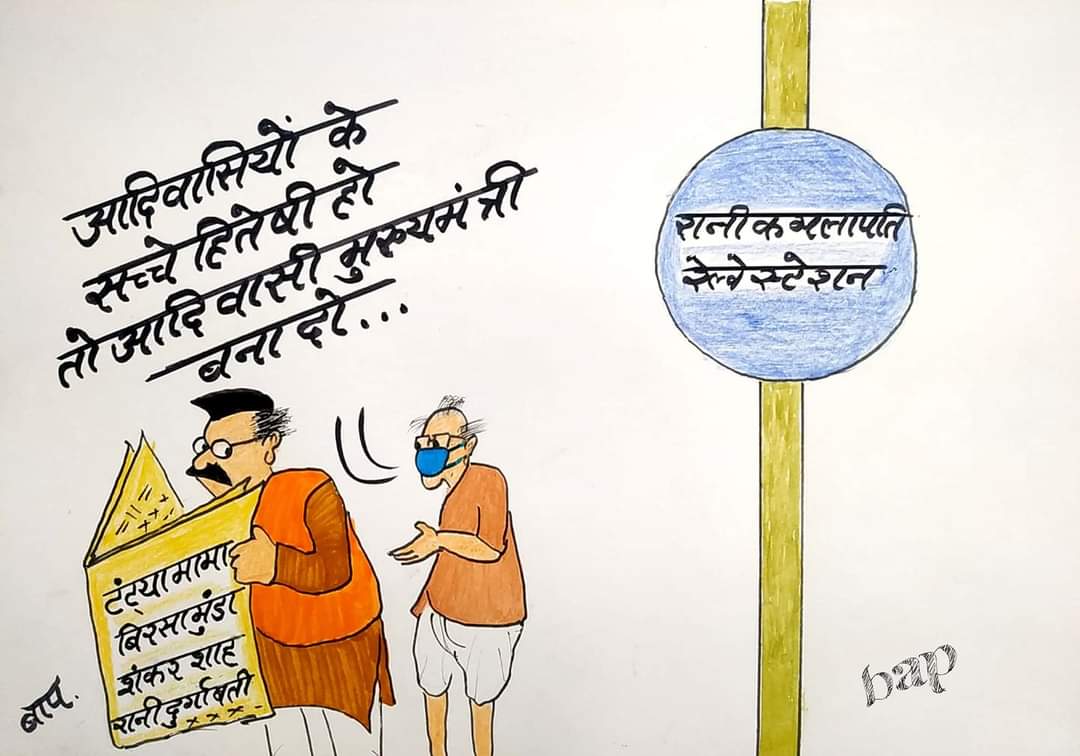 आदिवासियों के
सच्चे हितेषी हो
तो आदिवासी मुख्यमंत्री
बना दो...
रानी कमलापति
रेल्वे स्टेशन
टंट्या मामा
बिरसा मुंडा
शंकर शाह
रानी दुर्गावती
बाप.
bap